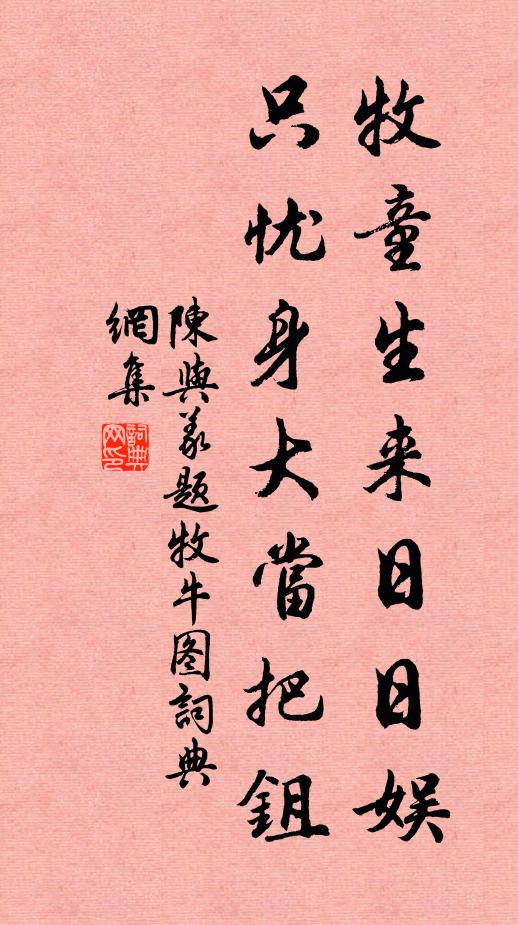 牧童生来日日娱
只忧身大當把鉏
陳與义題牧牛图詞典
網集
詞典
网印